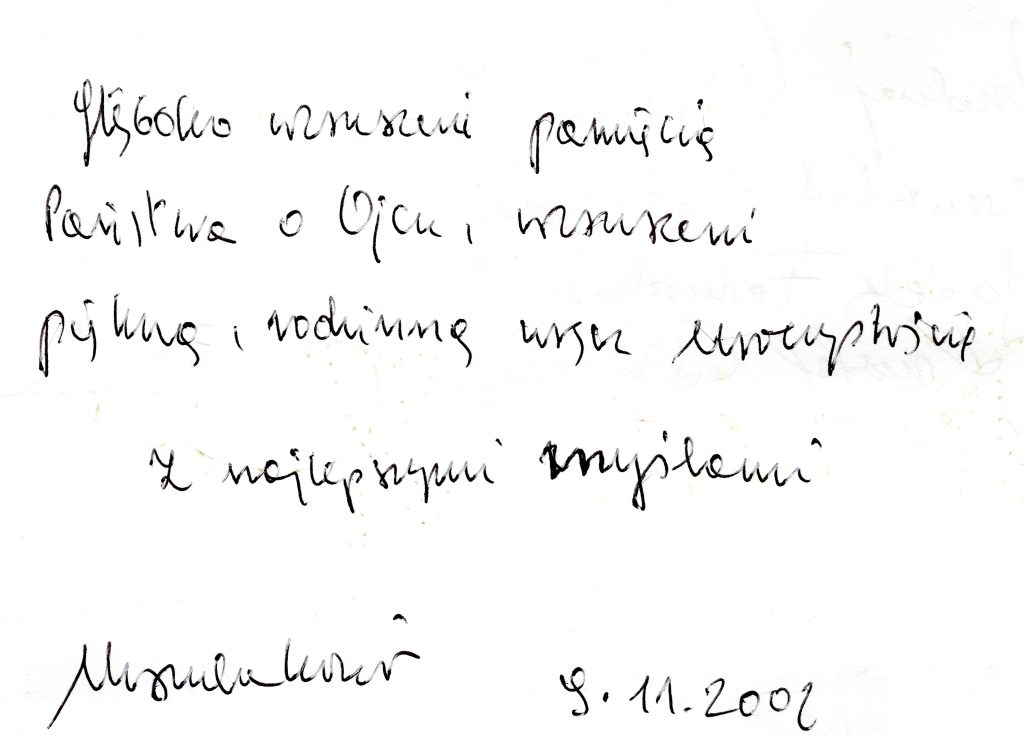 Głęboko wzruszeni pamięcią
Państwa o Ojcu, wzruszeni
piękną, rodzinną wręcz uroczystością
Z najlepszymi myślami
9.11.2002